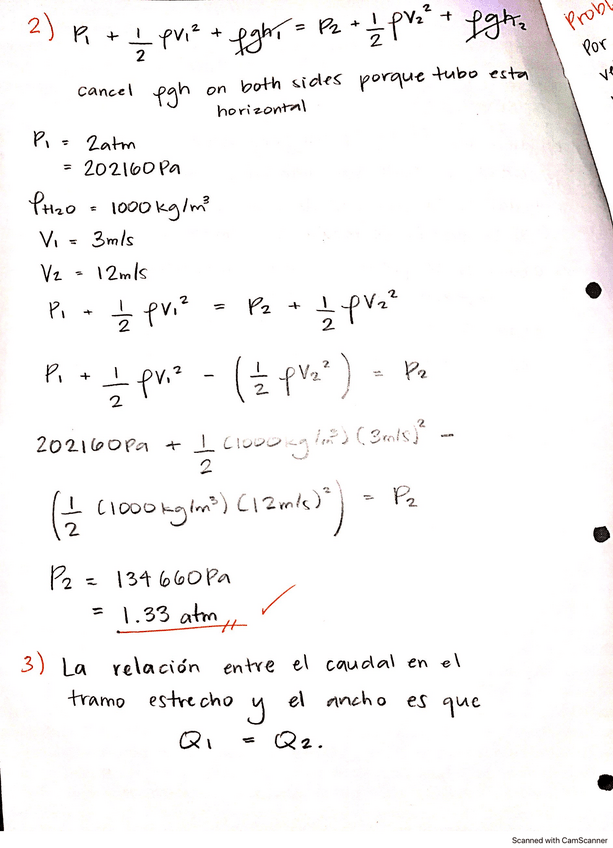 2) P₁ + 1/2 ρV₁² + ρgh₁ = P₂ + 1/2 ρV₂² + ρgh₂
cancel ρgh on both sides porque tubo esta
horizontal
P₁ = 2atm
= 202160Pa
ρH₂O = 1000 kg/m³
V₁ = 3m/s
V₂ = 12m/s
P₁ + 1/2 ρV₁² = P₂ + 1/2 ρV₂²
P₁ + 1/2 ρV₁² - (1/2 ρV₂²) = P₂
202160Pa + 1/2 (1000kg/m³)(3m/s)² -
(1/2 (1000kg/m³)(12m/s)²) = P₂
P₂ = 134660Pa
= 1.33 atm ✓
3) La relación entre el caudal en el
tramo estrecho y el ancho es que
Q₁ = Q₂.
Probl
Por
Scanned with CamScanner